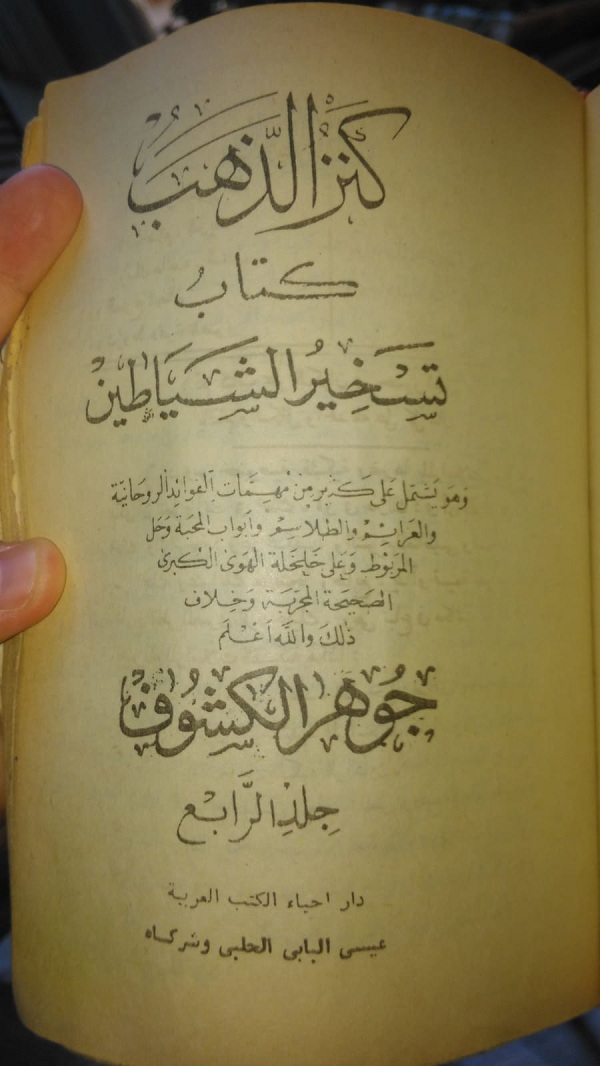 كنز الذهب
كتاب
تسخير الشياطين
وهو يشتمل على كثير من مهمات الفوائد الروحانية
والعزائم والطلاسم وأبواب المحبة وحل
المربوط وعلى خلخلة الهوى الكبرى
الصحيحة المجربة وخلاف
ذلك والله أعلم
جوهر الكشوف
جلد الرابع
دار احياء الكتب العربية
عيسى البابى الحلبى وشركاه